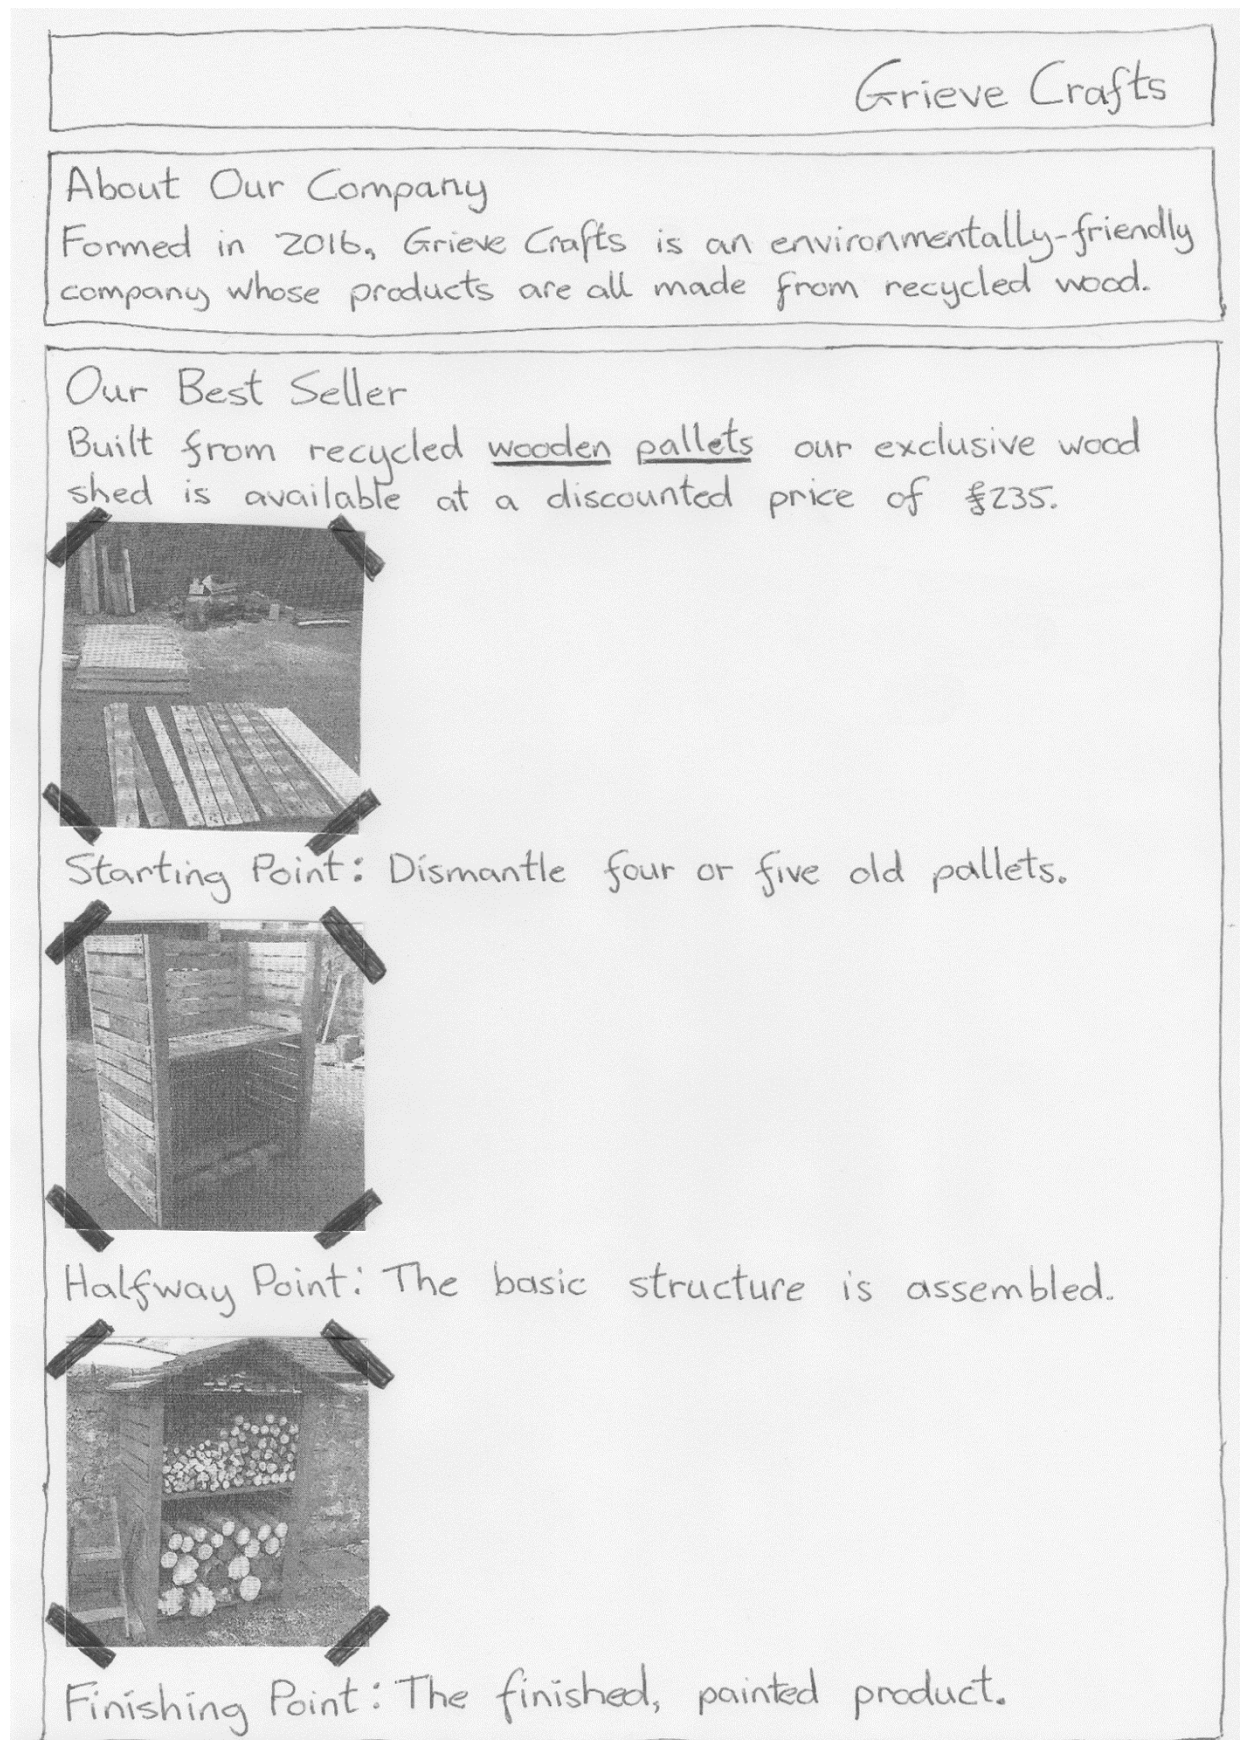 Grieve Crafts
About Our Company
Formed in 2016, Grieve Crafts is an environmentally-friendly
company whose products are all made from recycled wood.
Our Best Seller
Built from recycled wooden pallets our exclusive wood
shed is available at a discounted price of £235.
Starting Point: Dismantle four or five old pallets.
Halfway Point: The basic structure is assembled.
Finishing Point: The finished, painted product.